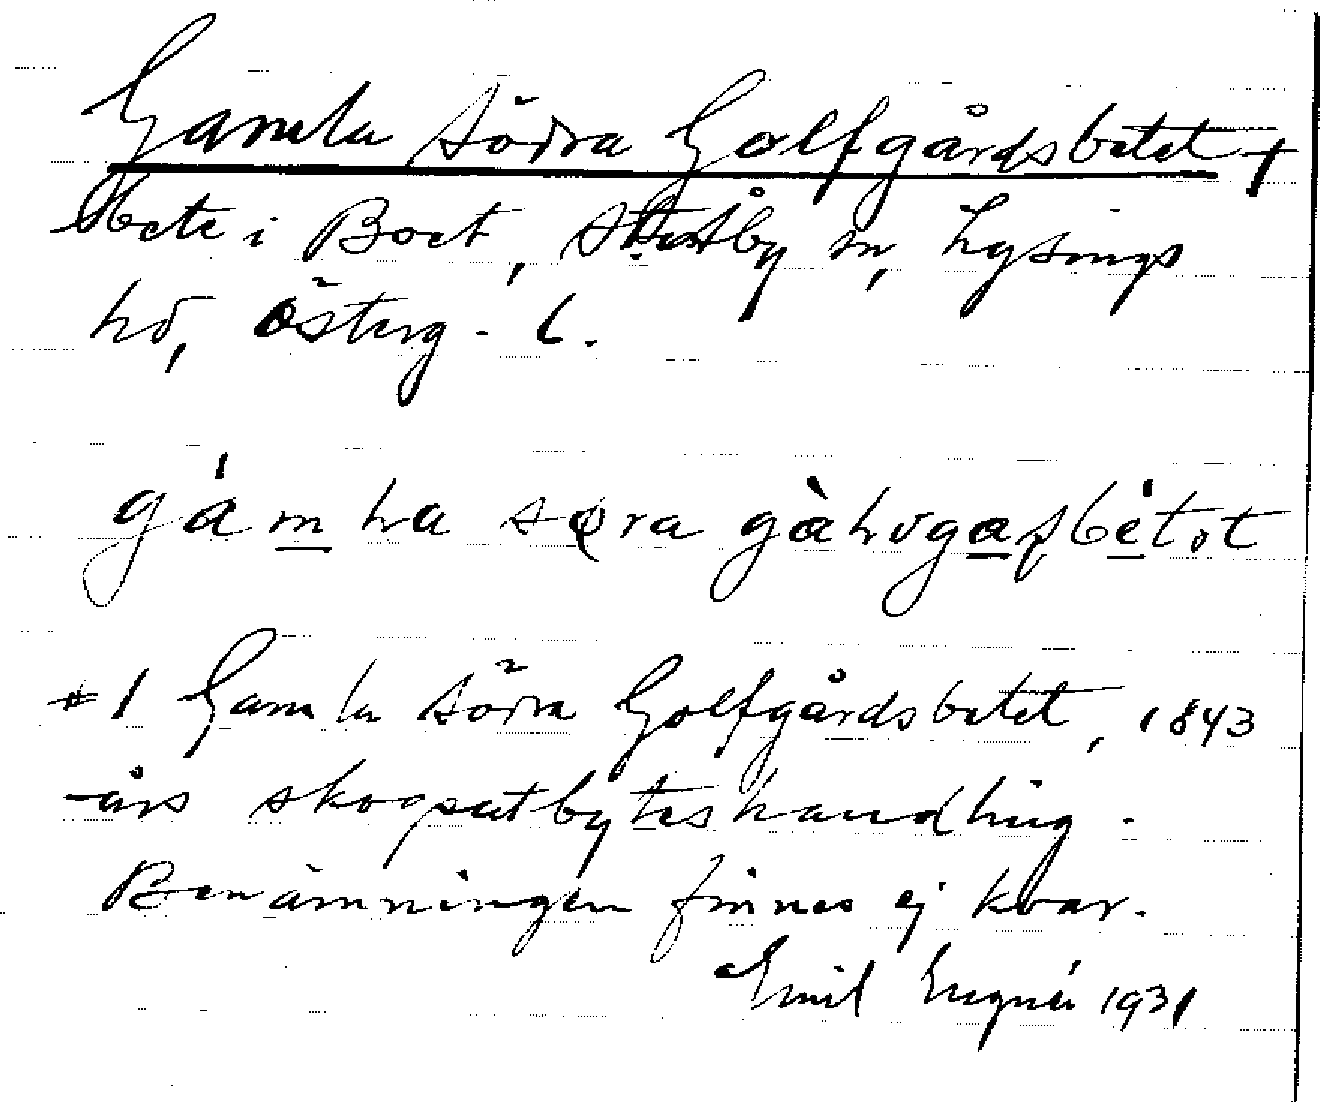 Gamla södra Golfgårdsbetet †
bete i Boet, Stråby sn, Lysings
hd, Österg. l.
gámla søra gàlvgaſbétət
# 1 Gamla södra Golfgårdsbetet, 1843
års skogsutbyteshandling.
Benämningen finnes ej kvar.
Emil 1931